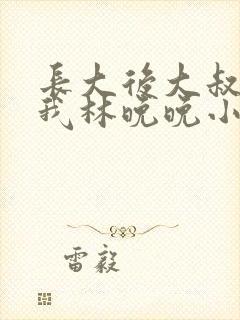 長大後大叔
我林晚晚小
雷毅